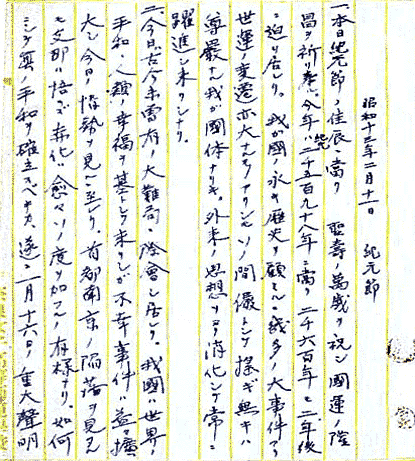 昭和十三年二月十一日　紀元節
一、本日紀元節ノ佳辰ニ当リ　聖寿ノ万歳ヲ祝シ國運ノ隆
昌ヲ祈リ奉ル。今年ハ紀元二千五百九十八年ニ當リ二千六百年モ二年後
ニ迫リ居レリ。我が國ノ永キ歴史ヲ顧ミルニ幾多ノ大事件アリ
世運ノ変遷亦大ナルモノアリシモソノ間儼トシテ揺ギ無キハ
尊厳ナル我が國体ナリキ。外来ノ思想ヲヨク消化シテ常ニ
躍進シ来リシナリ。
二、今日古今未曽有ノ大難局ニ際會シ居レリ。我國ハ世界ノ
平和、人類ノ幸福ヲ基トシ来リシガ不幸事件ハ益々擴
大シ今日ノ情勢ヲ見ルニ至レリ。首都南京ノ陥落ヲ見ルモ
支那ハ悟ラズ赤化ハ愈々ソノ度ヲ加フルノ有様ナリ。如何
ニシテ真ノ平和ヲ確立スベキカ、遂ニ一月十六日ノ重大声明